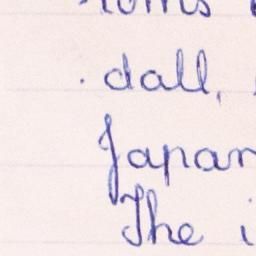 dall,
Japan
The i